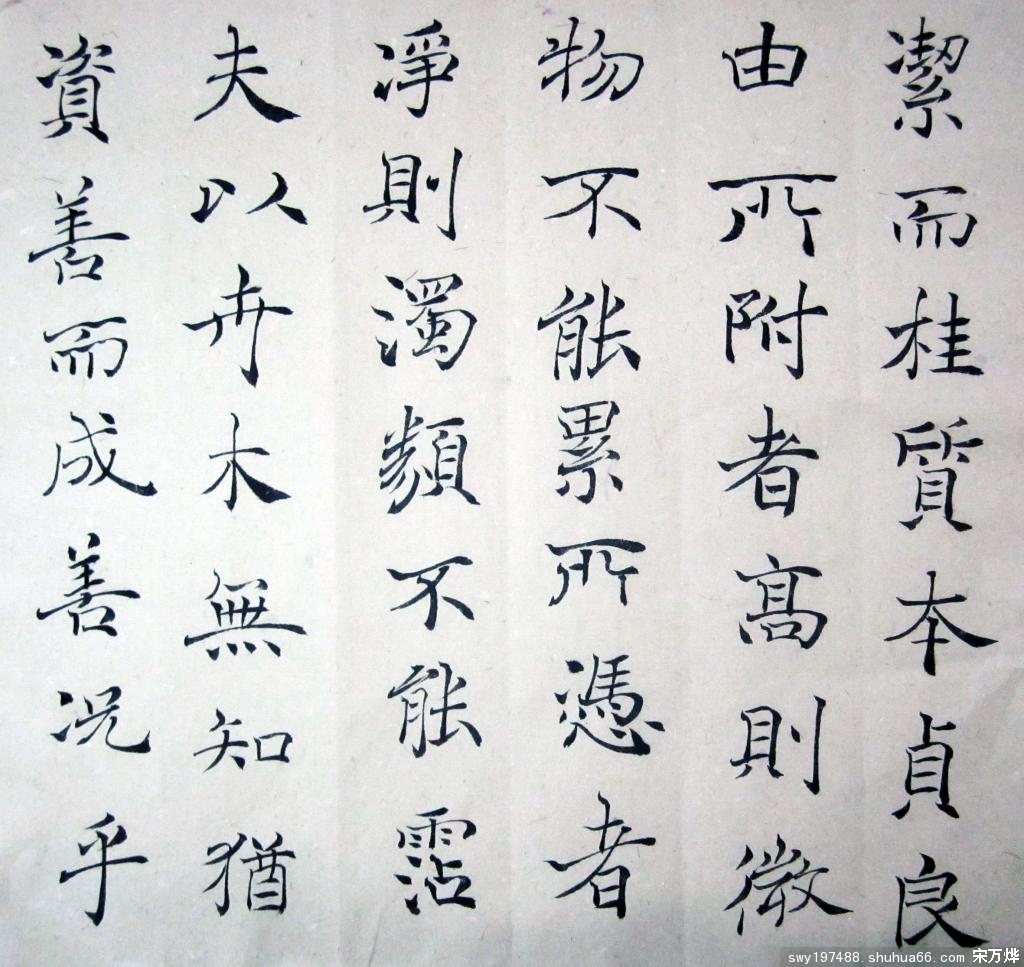 潔而桂質本貞良
由所附者高則微
物不能累所憑者
淨則濁類不能霑
夫以卉木無知猶
資善而成善況乎
swy197488.shuhua66.com 宋万烨